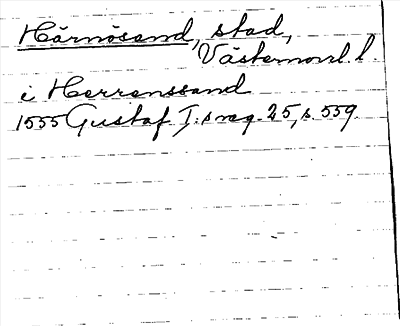 Härnösand, stad,
Västernorrl. l.
i Herrenssand
1555 Gustaf I:s reg. 25, s. 559.